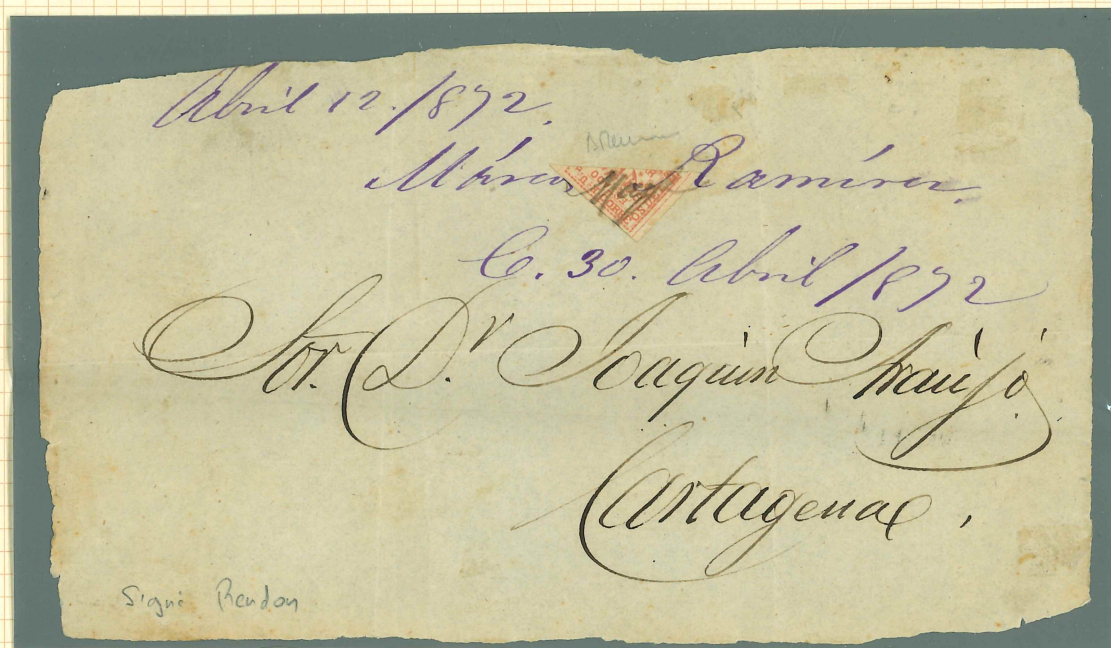 Abril 12./872.
Ramírez.
C. 30. Abril /872
Sor. Dr. Joaquin Araújo
Cartagena.
Signé Rendon